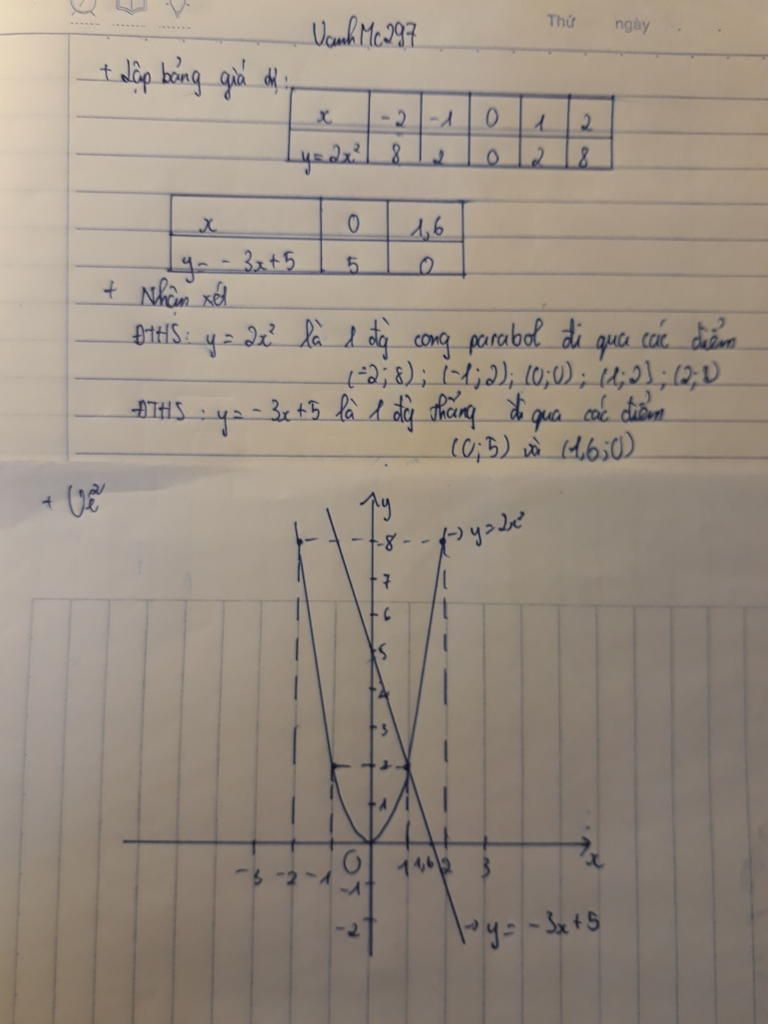 Thứ ngày
VanhMc297
+ Lập bảng giá trị:
x -2 -1 0 1 2
y=2x² 8 2 0 2 8
x 0 1,6
y= - 3x+5 5 0
+ Nhận xét
ĐTHS: y = 2x² là 1 đg cong parabol đi qua các điểm
(-2;8) ; (-1;2); (0;0) ; (1;2); (2;8)
ĐTHS : y = - 3x+5 là 1 đg thẳng đi qua các điểm
(0;5) và (1,6;0)
+ Vẽ
y
8 → y=2x²
7
6
5
4
3
2
1
-3 -2 -1 O 1 1,6 2 3 x
-1
-2 → y= -3x+5